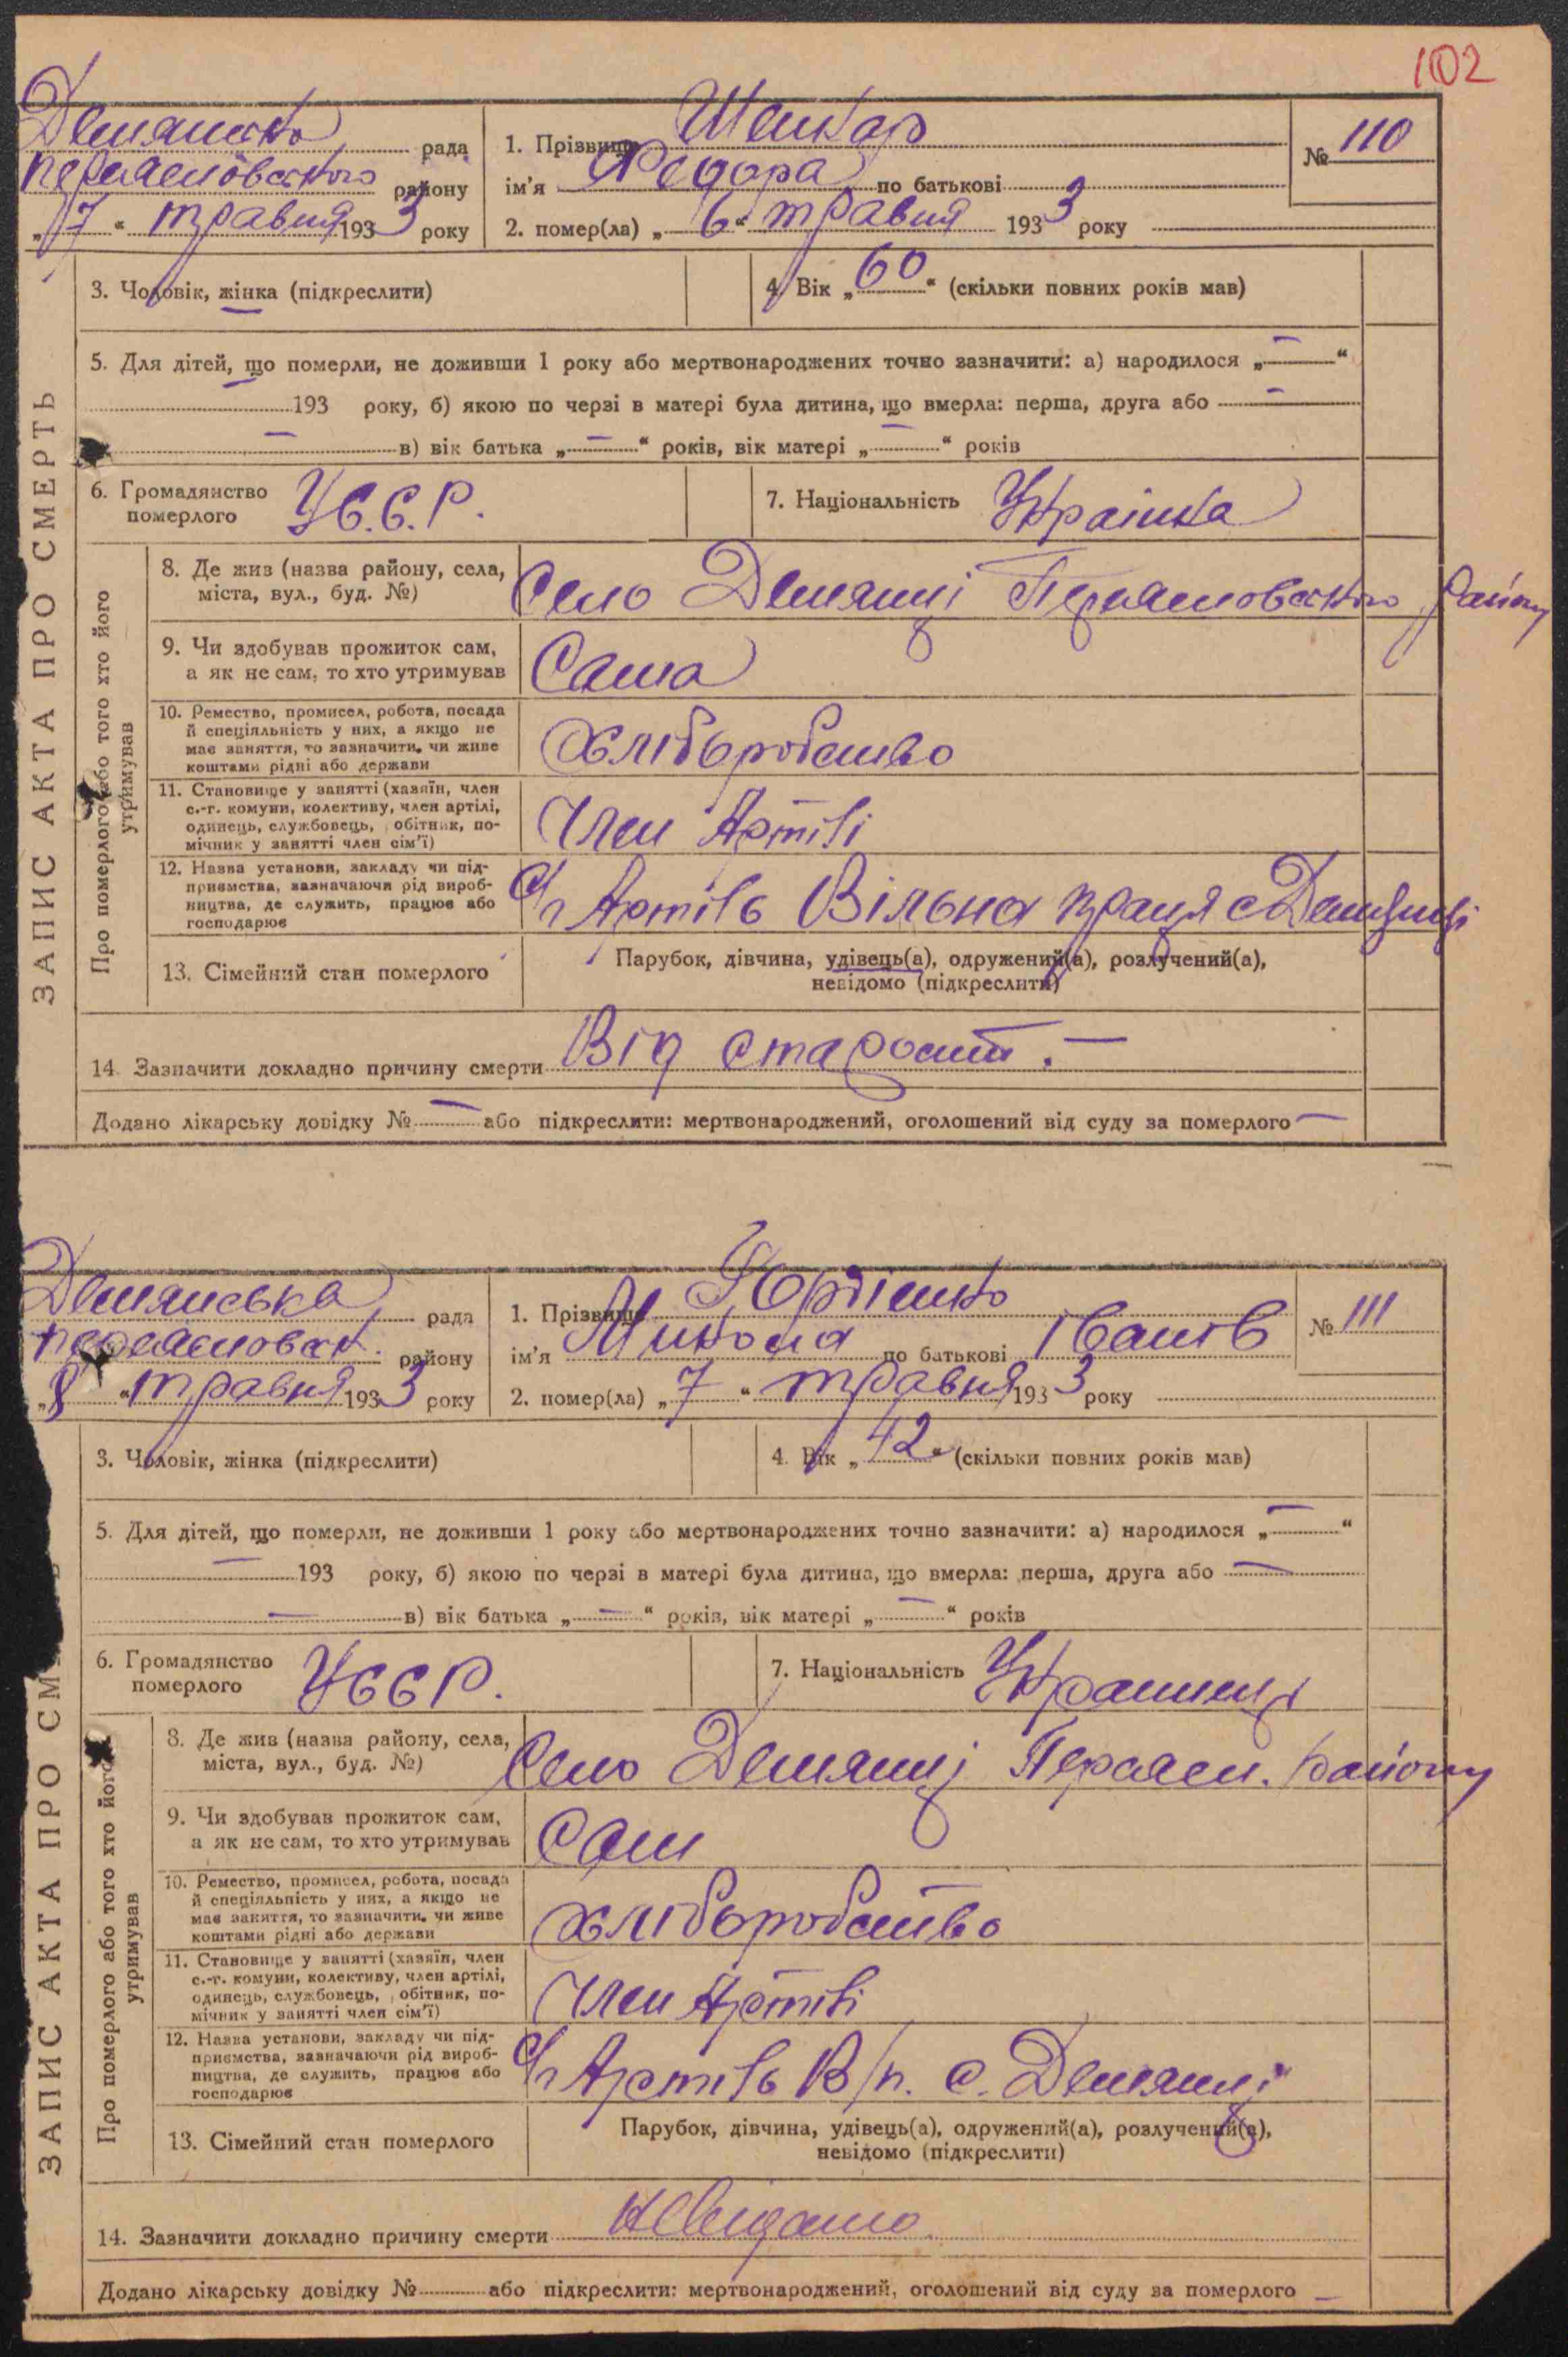 102
Демянська рада
переяславського району
„7“ травня 1933 року
1. Прізвище Шенкар
ім'я Федора по батькові
2. помер(ла) „6“ травня 1933 року
№ 110
ЗАПИС АКТА ПРО СМЕРТЬ
3. Чоловік, жінка (підкреслити)
4. Вік „60“ (скільки повних років мав)
5. Для дітей, що померли, не доживши 1 року або мертвонароджених точно зазначити: а) народилося „—“
— 193 року, б) якою по черзі в матері була дитина, що вмерла: перша, друга або —
— в) вік батька „—“ років, вік матері „—“ років
6. Громадянство
померлого У.С.С.Р.
7. Національність Українка
Про померлого або того хто його
утримував
8. Де жив (назва району, села,
міста, вул., буд. №)
Село Демянці Переяславського району
9. Чи здобував прожиток сам,
а як не сам, то хто утримував
Сама
10. Ремество, промисел, робота, посада
й спеціяльність у них, а якщо не
має заняття, то зазначити, чи живе
коштами рідні або держави
хліборобство
11. Становище у занятті (хазяїн, член
с.-г. комуни, колективу, член артілі,
одинець, службовець, робітник, по-
мічник у занятті член сім'ї)
Член Артілі
12. Назва установи, закладу чи під-
приємства, зазначаючи рід вироб-
ництва, де служить, працює або
господарює
С/г Артіль Вільна праця с Демянці
13. Сімейний стан померлого
Парубок, дівчина, удівець(а), одружений(а), розлучений(а),
невідомо (підкреслити)
14. Зазначити докладно причину смерти Від старости. —
Додано лікарську довідку № — або підкреслити: мертвонароджений, оголошений від суду за померлого —
Демянська рада
переяславськ. району
„8“ травня 1933 року
1. Прізвище
ім'я Микола по батькові Іванів
2. помер(ла) „7“ травня 1933 року
№ 111
ЗАПИС АКТА ПРО СМ
3. Чоловік, жінка (підкреслити)
4. Вік „42“ (скільки повних років мав)
5. Для дітей, що померли, не доживши 1 року або мертвонароджених точно зазначити: а) народилося „—“
— 193 року, б) якою по черзі в матері була дитина, що вмерла: перша, друга або —
— в) вік батька „—“ років, вік матері „—“ років
6. Громадянство
померлого УССР.
7. Національність Украинець
Про померлого або того хто його
утримував
8. Де жив (назва району, села,
міста, вул., буд. №)
Село Демянці Переясл. району
9. Чи здобував прожиток сам,
а як не сам, то хто утримував
Сам
10. Ремество, промисел, робота, посада
й спеціяльність у них, а якщо не
має заняття, то зазначити, чи живе
коштами рідні або держави
хліборобство
11. Становище у занятті (хазяїн, член
с.-г. комуни, колективу, член артілі,
одинець, службовець, робітник, по-
мічник у занятті член сім'ї)
Член Артілі
12. Назва установи, закладу чи під-
приємства, зазначаючи рід вироб-
ництва, де служить, працює або
господарює
С/г Артіль В/п. с. Демянці
13. Сімейний стан померлого
Парубок, дівчина, удівець(а), одружений(а), розлучений(а),
невідомо (підкреслити)
14. Зазначити докладно причину смерти Невідомо.
Додано лікарську довідку № або підкреслити: мертвонароджений, оголошений від суду за померлого —